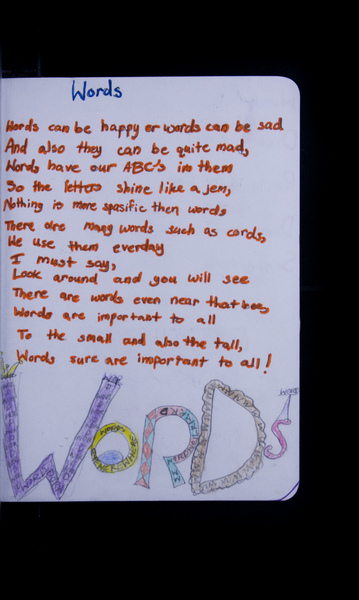 Words
Words can be happy or words can be sad
And also they can be quite mad,
Words have our ABC's in them
So the letters shine like a jem,
Nothing is more spasific then words
There are many words such as cords,
We use them everday
I must say,
Look around and you will see
There are words even near that tree,
Words are important to all
To the small and also the tall,
Words sure are important to all!
WORDS